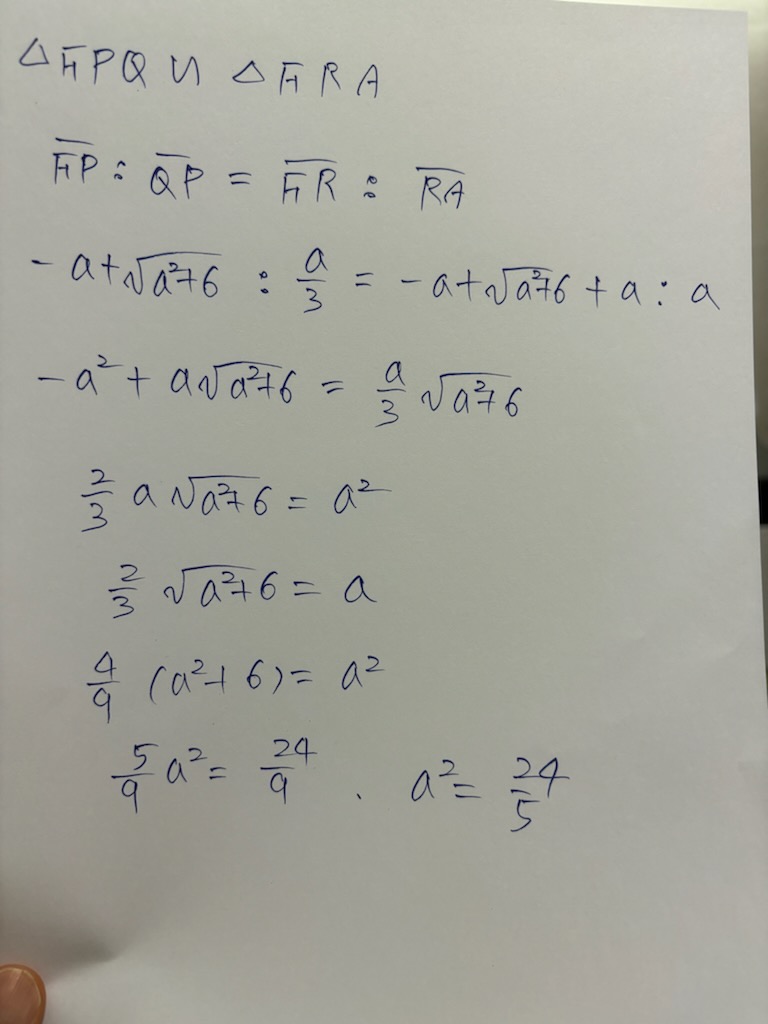 △FPQ ∽ △FRA
F̅P̅ : Q̅P̅ = F̅R̅ : R̅A̅
-a+√(a²+6) : a/3 = -a+√(a²+6) + a : a
-a² + a√(a²+6) = a/3 √(a²+6)
2/3 a √(a²+6) = a²
2/3 √(a²+6) = a
4/9 (a²+6) = a²
5/9 a² = 24/9 . a² = 24/5